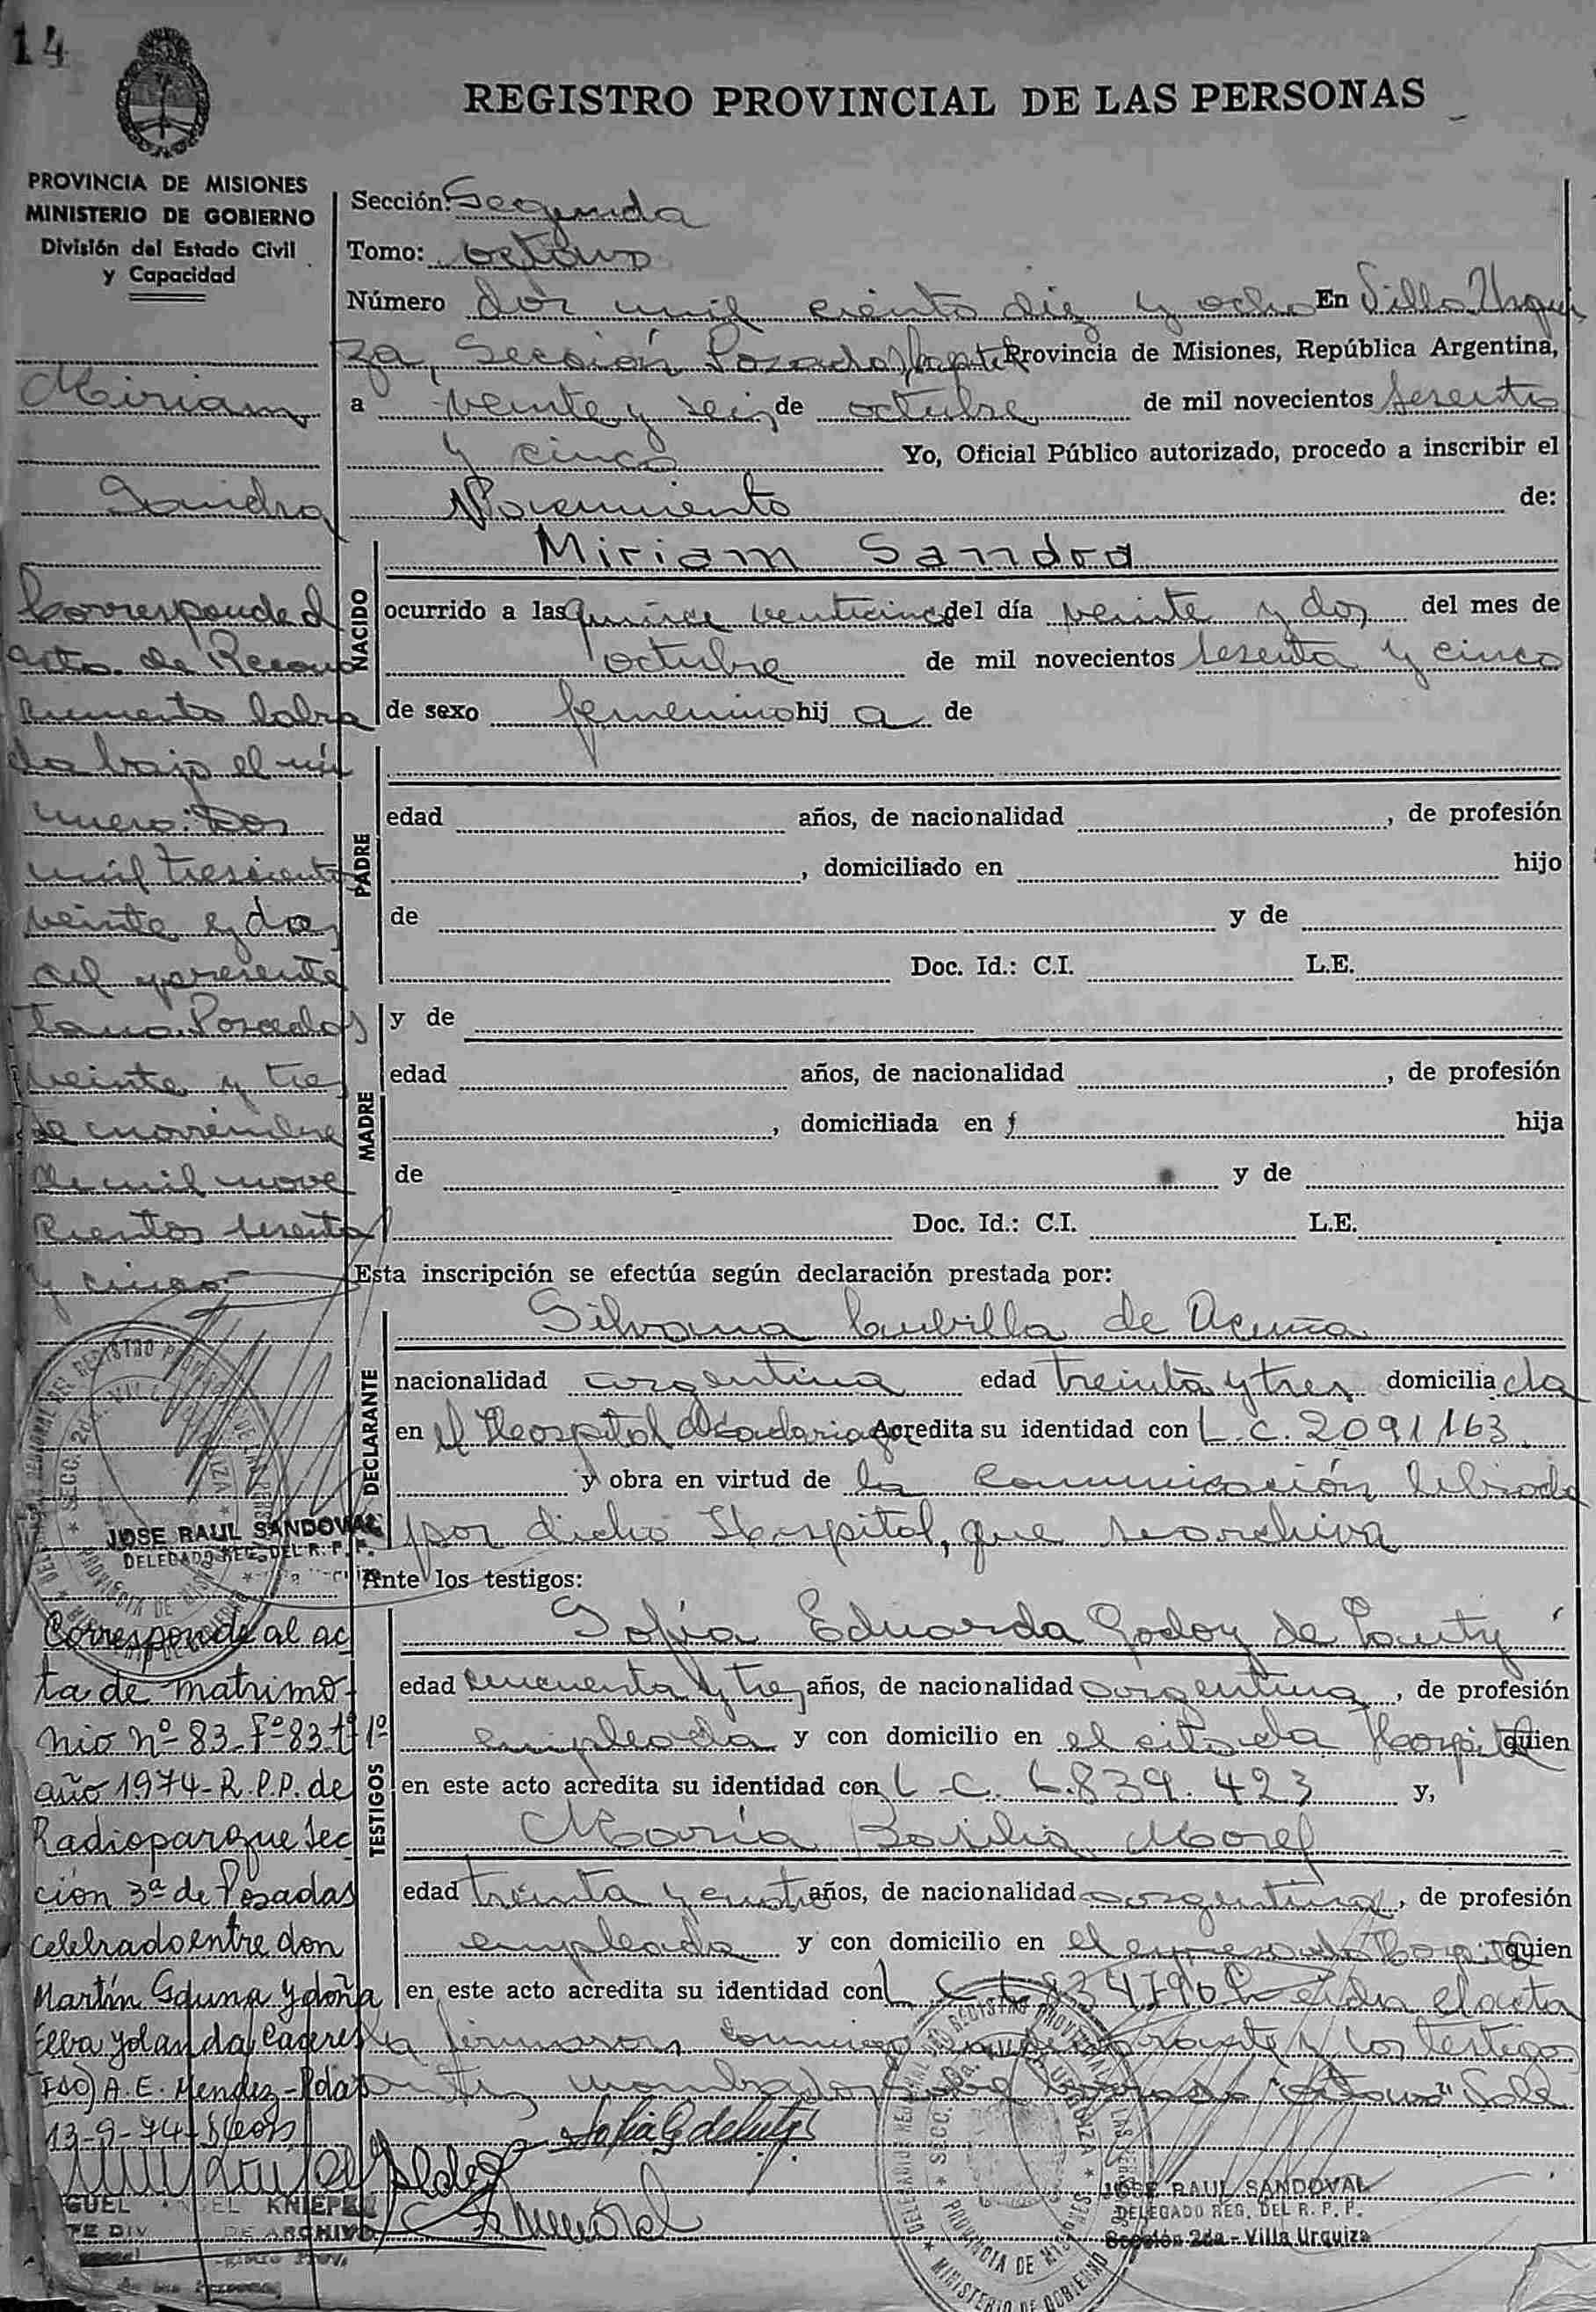 14
REGISTRO PROVINCIAL DE LAS PERSONAS
PROVINCIA DE MISIONES
MINISTERIO DE GOBIERNO
División del Estado Civil
y Capacidad
Miriam
Sandra
Corresponde al
acta de Recono
cimiento labra
da bajo el nú
mero: Dos
mil trescientos
veinte y dos
del presente
Tomo. Posadas
veinte y tres
de noviembre
de mil nove
cientos sesenta
y cinco
JOSE RAUL SANDOVAL
DELEGADO REG. DEL R. P. P.
Corresponde al ac
ta de matrimo
nio nº 83-Fº 83-tº 1º
año 1974-R.P.P. de
Radioparque Sec
ción 3ª de Posadas
celebrado entre don
Martín Gduna y doña
Elba Yolanda Caceres
Fdo) A. E. Mendez-Pdas
13-9-74
GUEL ANGEL KNIEPE
TE DIV DE ARCHIVO
Sección: Segunda
Tomo: octavo
Número dos mil ciento diez y ocho En Villa Urqui
za, Sección Posadas, Capital Provincia de Misiones, República Argentina,
a veinte y seis de octubre de mil novecientos sesenta
y cinco Yo, Oficial Público autorizado, procedo a inscribir el
Nacimiento de:
NACIDO
Miriam Sandra
ocurrido a las quince venticinco del día veinte y dos del mes de
octubre de mil novecientos sesenta y cinco
de sexo femenino hij a de
PADRE
edad años, de nacionalidad , de profesión
, domiciliado en hijo
de y de
Doc. Id.: C.I. L.E.
MADRE
y de
edad años, de nacionalidad , de profesión
, domiciliada en hija
de y de
Doc. Id.: C.I. L.E.
Esta inscripción se efectúa según declaración prestada por:
DECLARANTE
Silvana Cubilla de Acuña
nacionalidad argentina edad treinta y tres domicilia da
en el Hospital Madariaga Acredita su identidad con L.C. 2091163
y obra en virtud de la comunicación librada
por dicho Hospital, que se archiva
Ante los testigos:
TESTIGOS
Sofía Eduarda Godoy de
edad cincuenta y tres años, de nacionalidad argentina, de profesión
empleada y con domicilio en el citado Hospital quien
en este acto acredita su identidad con L.C. 6.839.423 y,
María Basilia Morel
edad treinta y cuatro años, de nacionalidad argentina, de profesión
empleada y con domicilio en el expresado Hospital quien
en este acto acredita su identidad con L. C. Leída el acta
la firmaron conmigo y los testigos
antes nombrados
JOSE RAUL SANDOVAL
DELEGADO REG. DEL R. P. P.
Sección 2da - Villa Urquiza